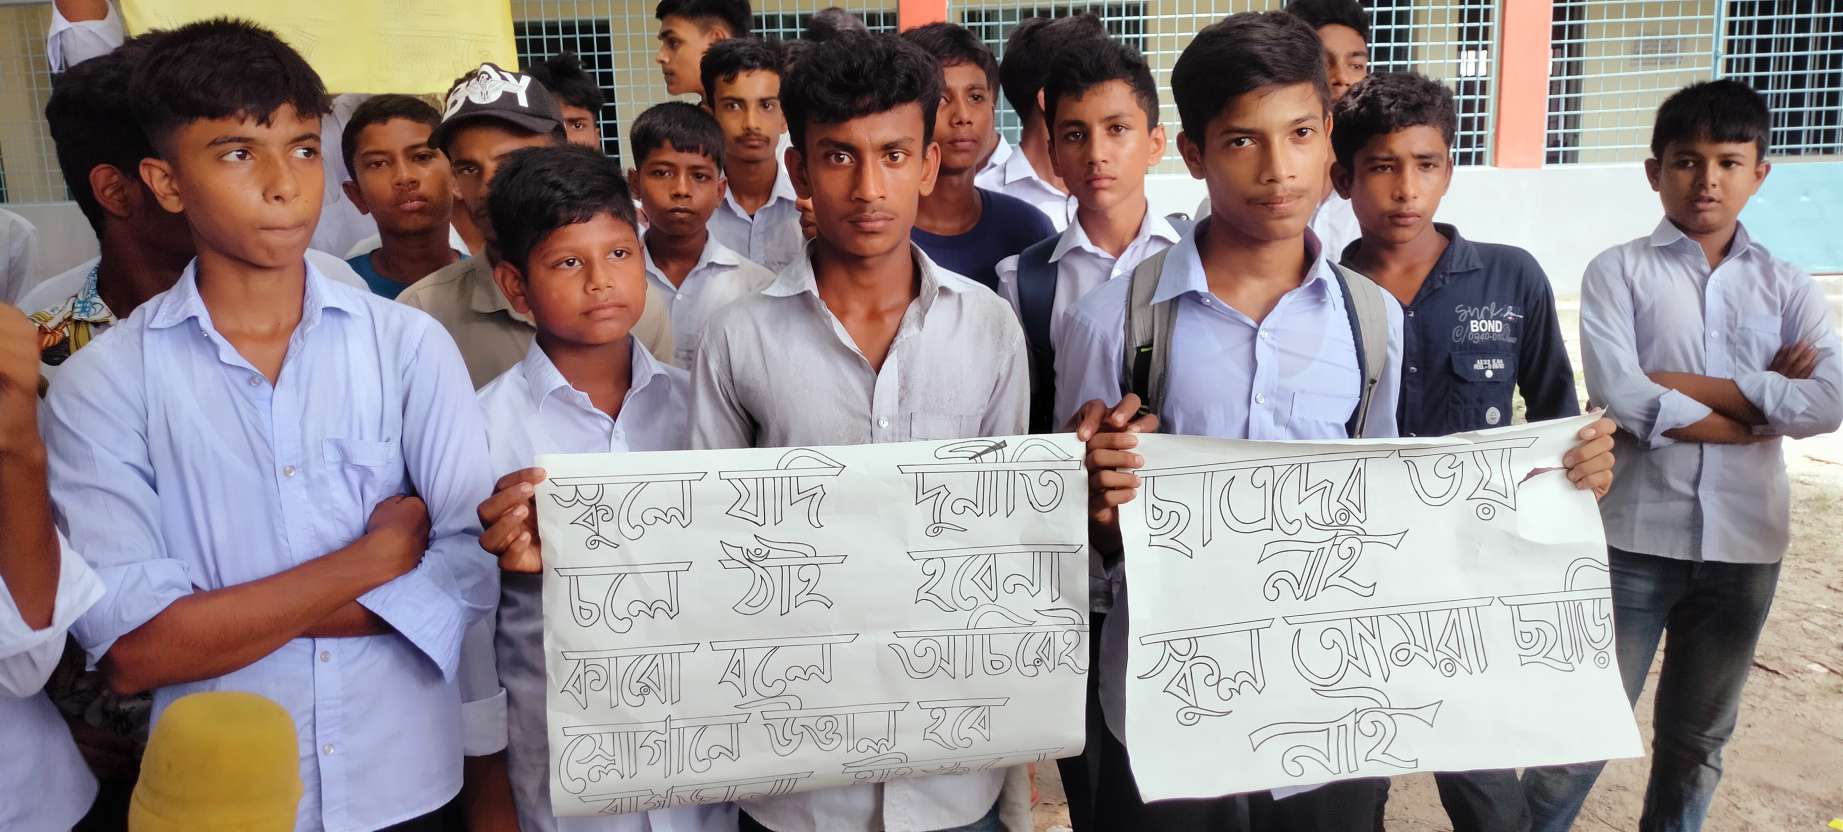 BOY
BOND
স্কুলে যদি দুর্নীতি
চলে ঠাঁই হবেনা
কারো বলে অচিরেই
স্লোগানে উত্তাল হবে
ছাত্রদের ভয়
নাই
স্কুল আমরা ছাড়ি
নাই